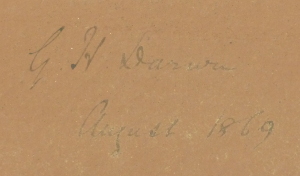 G. H. Darwin
August. 1869